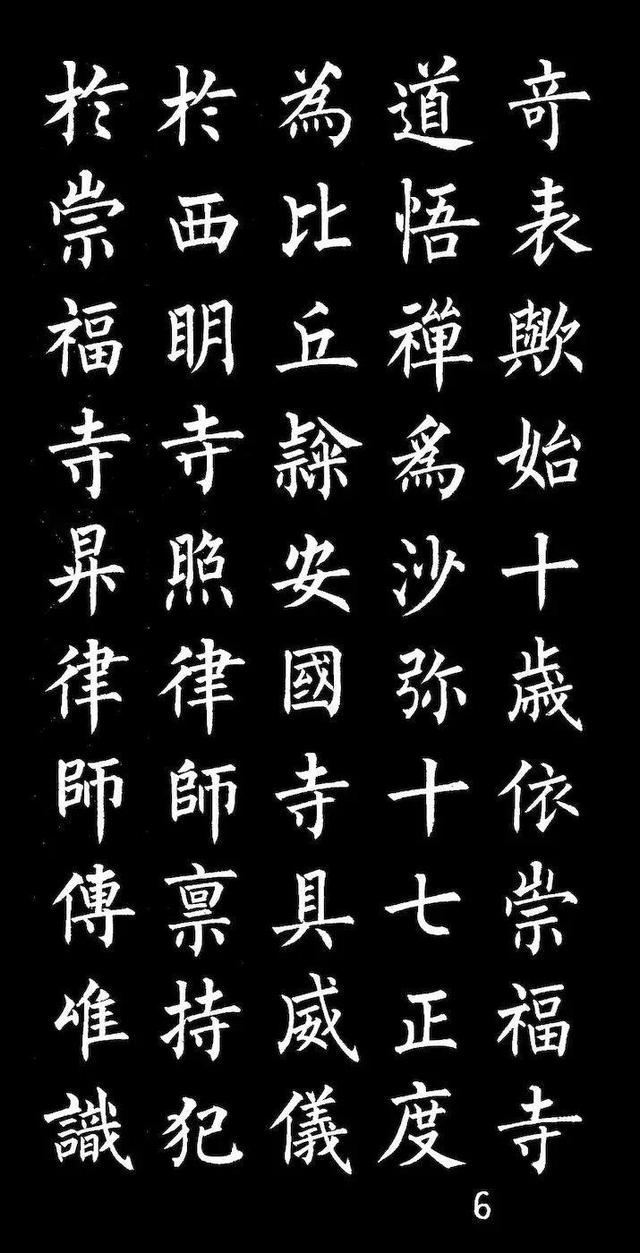 奇表歟始十歳依崇福寺
道悟禪為沙弥十七正度
為比丘隸安國寺具威儀
於西明寺照律師禀持犯
於崇福寺昇律師傳唯識
6